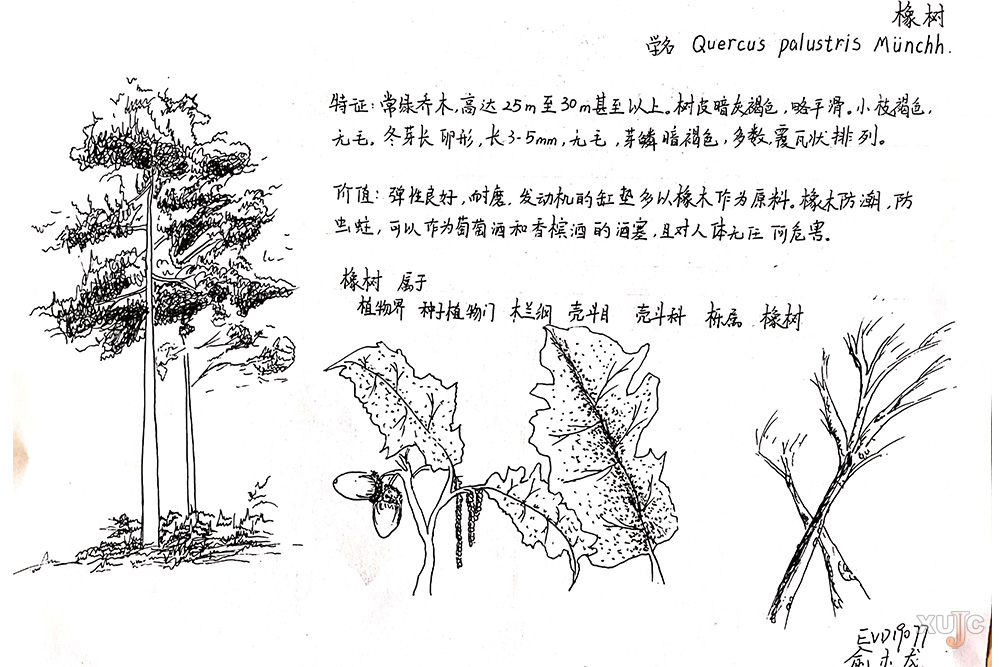 橡树
学名 Quercus palustris Münchh.
特征：常绿乔木，高达25m至30m甚至以上。树皮暗灰褐色，略平滑。小枝褐色，
无毛。冬芽长卵形，长3-5mm，无毛，芽鳞暗褐色，多数，覆瓦状排列。
价值：弹性良好，耐磨，发动机的缸垫多以橡木作为原料。橡木防潮，防
虫蛀，可以作为葡萄酒和香槟酒的酒塞，且对人体无任何危害。
橡树 属于
植物界 种子植物门 木兰纲 壳斗目 壳斗科 栎属 橡树
EVD19077
XUJC